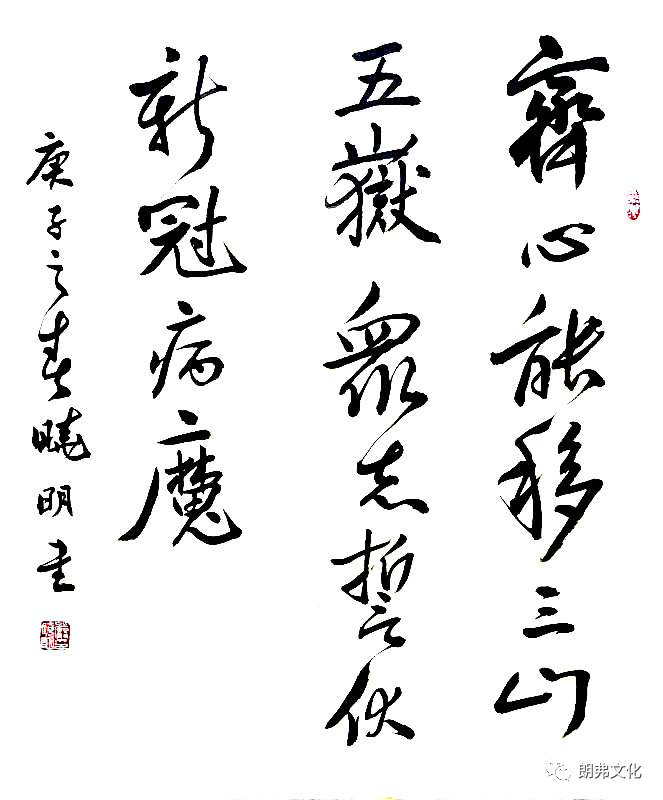 齊心能移三山
五嶽眾志誓伏
新冠病魔
庚子之春曉明書
朗弗文化